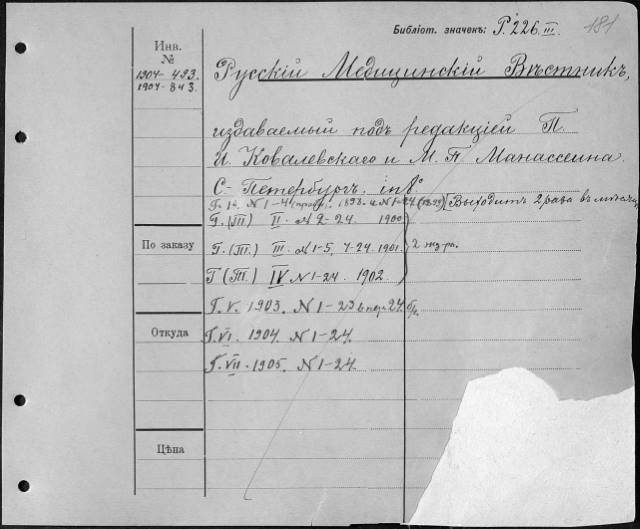 Библіот. значекъ: Р. 226 III. 181
Инв.
№
1904-493.
1904-843.
Русскій Медицинскій Вѣстникъ,
издаваемый подъ редакціей П.
И. Ковалевскаго и М. П. Манассеина.
С-Петербургъ. in 8°
Г. 1й. N 1-4 1898. и N 1-24 (1899) [Выходитъ 2 раза въ мѣсяцъ
Г. (III) II. N 2-24. 1900
По заказу
Г. (III.) III. N 1-5, 7-24. 1901. 2 экз-ра.
Г (III) IV N 1-24. 1902.
Г. V. 1903. N 1-23 24.
Откуда
Г. VI. 1904. N 1-24.
Г. VII. 1905. N 1-24.
Цѣна